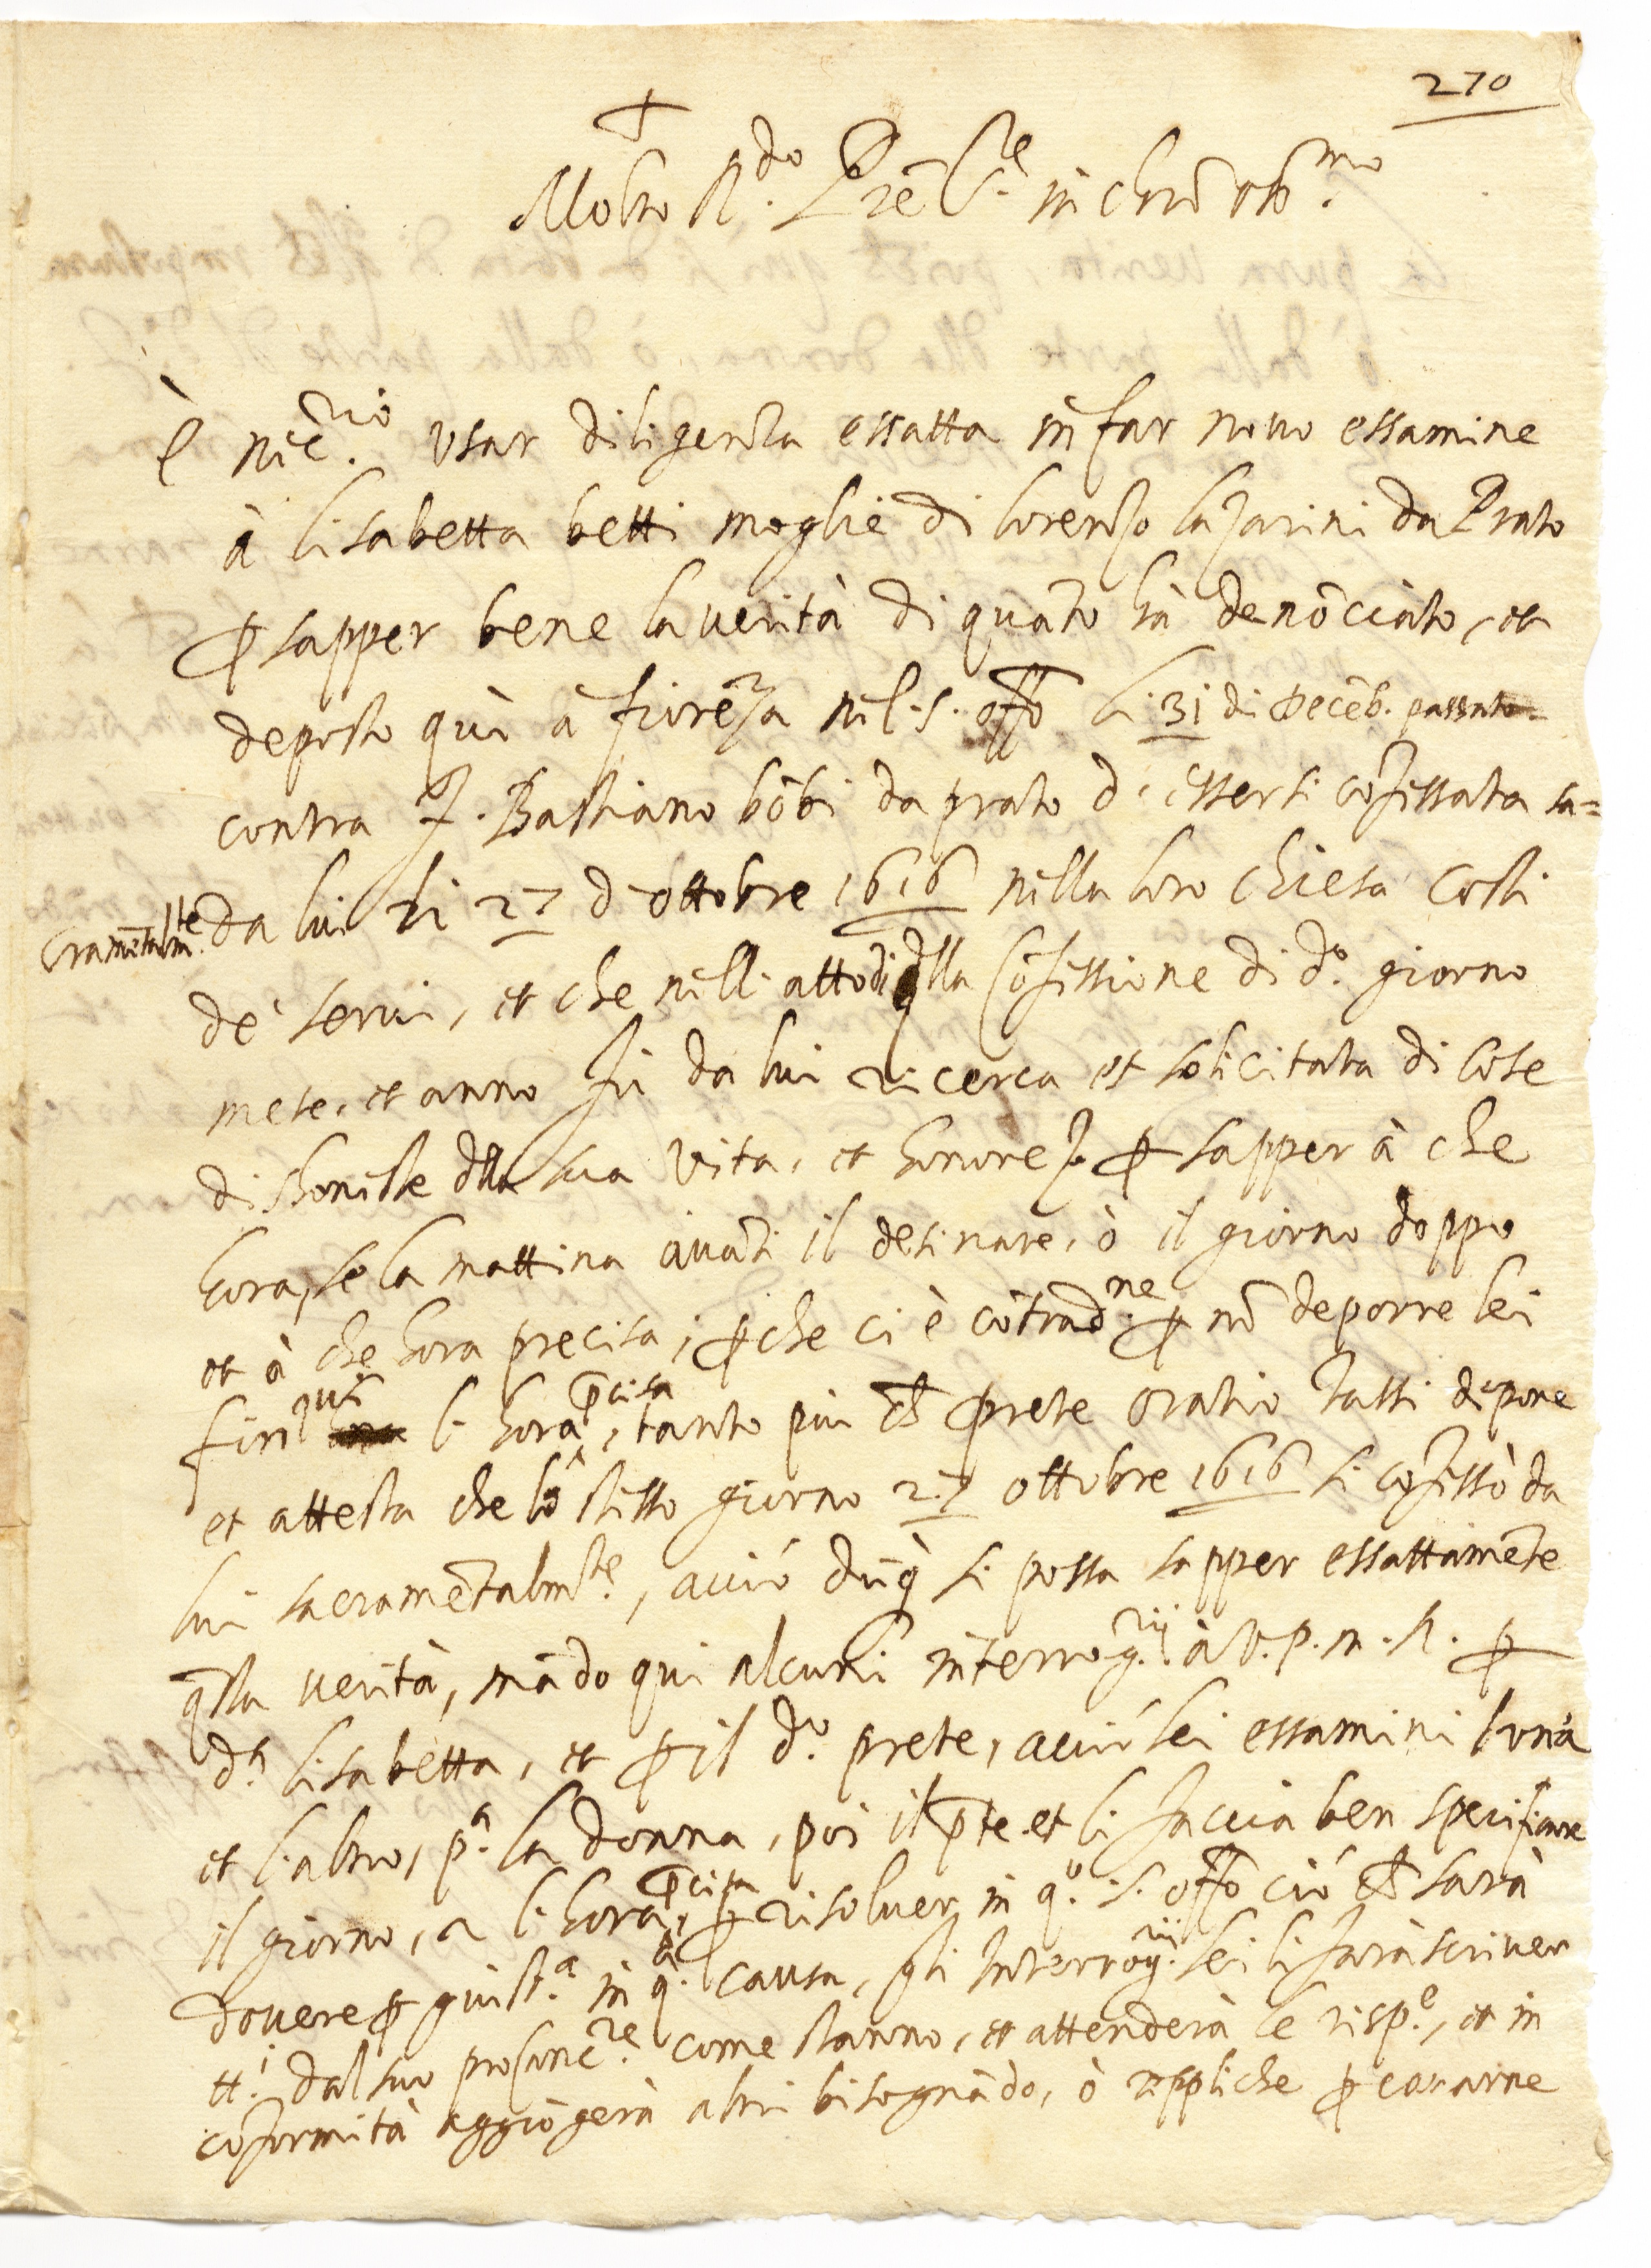 270
+
Molto R.do Prē S.re in Chrō oss.mo
È nēc.rio usar diligenza essatta in far novo essamine
à lisabetta betti moglie di lorenzo lazarini da Prato
ꝑ sapper bene la verità di quāto hà denōciato, et
deposto quì à fiorēza nel s. offo li 31 di Decēb. passato
contra f. Bastiano bōbi da prato d'essersi cōfessata sa=
cramētalm.te da lui li 27 d'ottobre 1616 nella loro Chiesa costi
de' servi, et che nell'atto di qlla Cōfessione di d.o giorno
mese, et anno fù da lui ricerca et solicitata di cose
dishoneste dlla sua vita, et honore, ꝑ sapper à che
hora, se la mattina avāti il desinare, ò il giorno doppo
et à che hora precisa, ꝑche ci è cōtrad.ne ꝑ nō deporre lei
fin qui l'hora p̄cisa, tanto piu ch' prete Oratio Tassi depone
et attesta che lo stesso giorno 27 ottobre 1616 si cōfessò da
lui sacramētalm.te, acciò dūq̄ si possa sapper essattamēte
q̄sta verità, mādo qui alcuni interrog.rij à V. P. M. R. ꝑ
d.a lisabetta, et ꝑ il d.o prete, acciò lei essamini l'una
et l'altro, p.a la donna, poi il p̄te et li faccia ben specificare
il giorno, e l'hora p̄cisa, ꝑ risolver in q.o s. offo ciò ch' sarà
dovere ꝑ giust.a in q.a causa, gli Interrog.rij lei li farà scriver
tt.i dal suo pro canc.re come stanno, et attenderà le risp.e, et in
cōformità aggiōgerà altri bisognādo, ò reppliche ꝑ cavarne